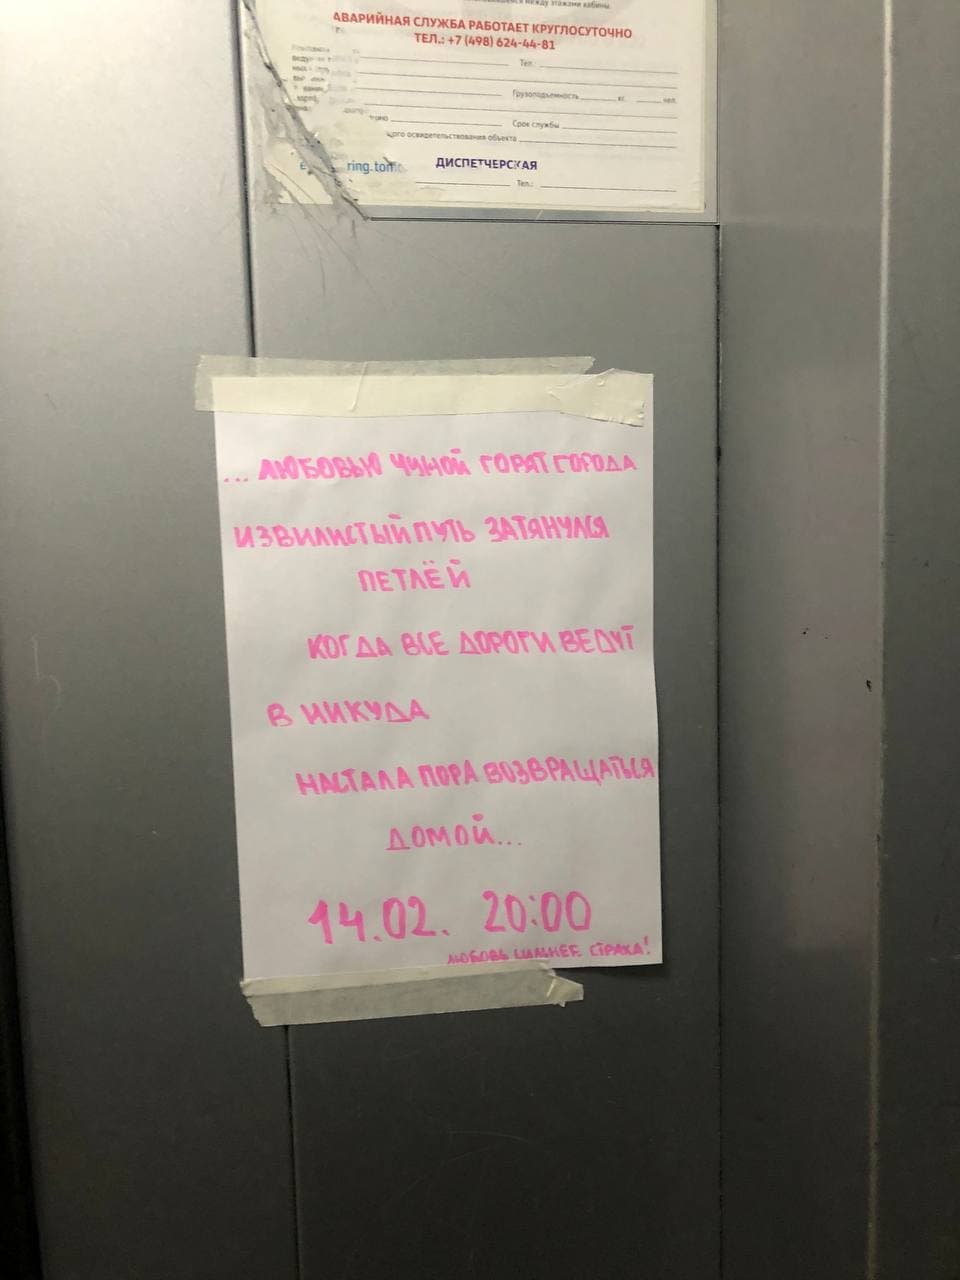 между этажами кабины.
АВАРИЙНАЯ СЛУЖБА РАБОТАЕТ КРУГЛОСУТОЧНО
ТЕЛ.: +7 (498) 624-44-81
Тел.
Грузоподъемность кг. чел.
Срок службы
освидетельствования объекта
ring.tom
ДИСПЕТЧЕРСКАЯ
Тел.:
... ЛЮБОВЬЮ ЧУМОЙ ГОРЯТ ГОРОДА
ИЗВИЛИСТЫЙ ПУТЬ ЗАТЯНУЛСЯ
ПЕТЛЁЙ
КОГДА ВСЕ ДОРОГИ ВЕДУТ
В НИКУДА
НАСТАЛА ПОРА ВОЗВРАЩАТЬСЯ
ДОМОЙ...
14.02. 20:00
ЛЮБОВЬ СИЛЬНЕЕ СТРАХА!